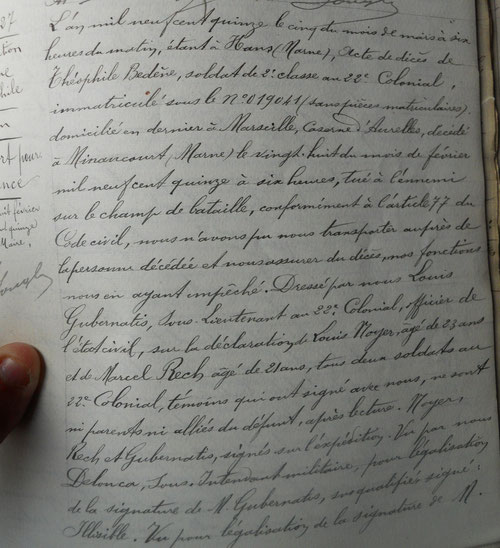 27
L'an mil neuf cent quinze le cinq du mois de mars à six
heures du matin, étant à Hans (Marne), Acte de décès de
Théophile Bedène, soldat de 2e classe au 22e Colonial,
immatriculé sous le No 019041 (sans pièces matriculaires)
domicilié en dernier à Marseille, Caserne d'Aurelles, décédé
à Minaucourt, Marne) le vingt-huit du mois de février
mil neuf cent quinze à six heures, tué à l'ennemi
sur le champ de bataille, conformément à l'article 77 du
Code civil, nous n'avons pu nous transporter auprès de
la personne décédée et nous assurer du décès, nos fonctions
nous en ayant empêché. Dressé par nous Louis
Gubernatis, Sous-Lieutenant au 22e Colonial, officier de
l'état civil, sur la déclaration de Louis Noyer, agé de 23 ans
et de Marcel Rech agé de 21 ans, tous deux soldats au
22e Colonial, témoins qui ont signé avec nous, ne sont
ni parents ni alliés du défunt, après lecture. Noyer,
Rech, et Gubernatis, signés sur l'expédition. Vu par nous
Delonca, Sous-Intendant militaire, pour légalisation
de la signature de M. Gubernatis, susqualifié signé:
Illisible. Vu pour légalisation de la signature de M.